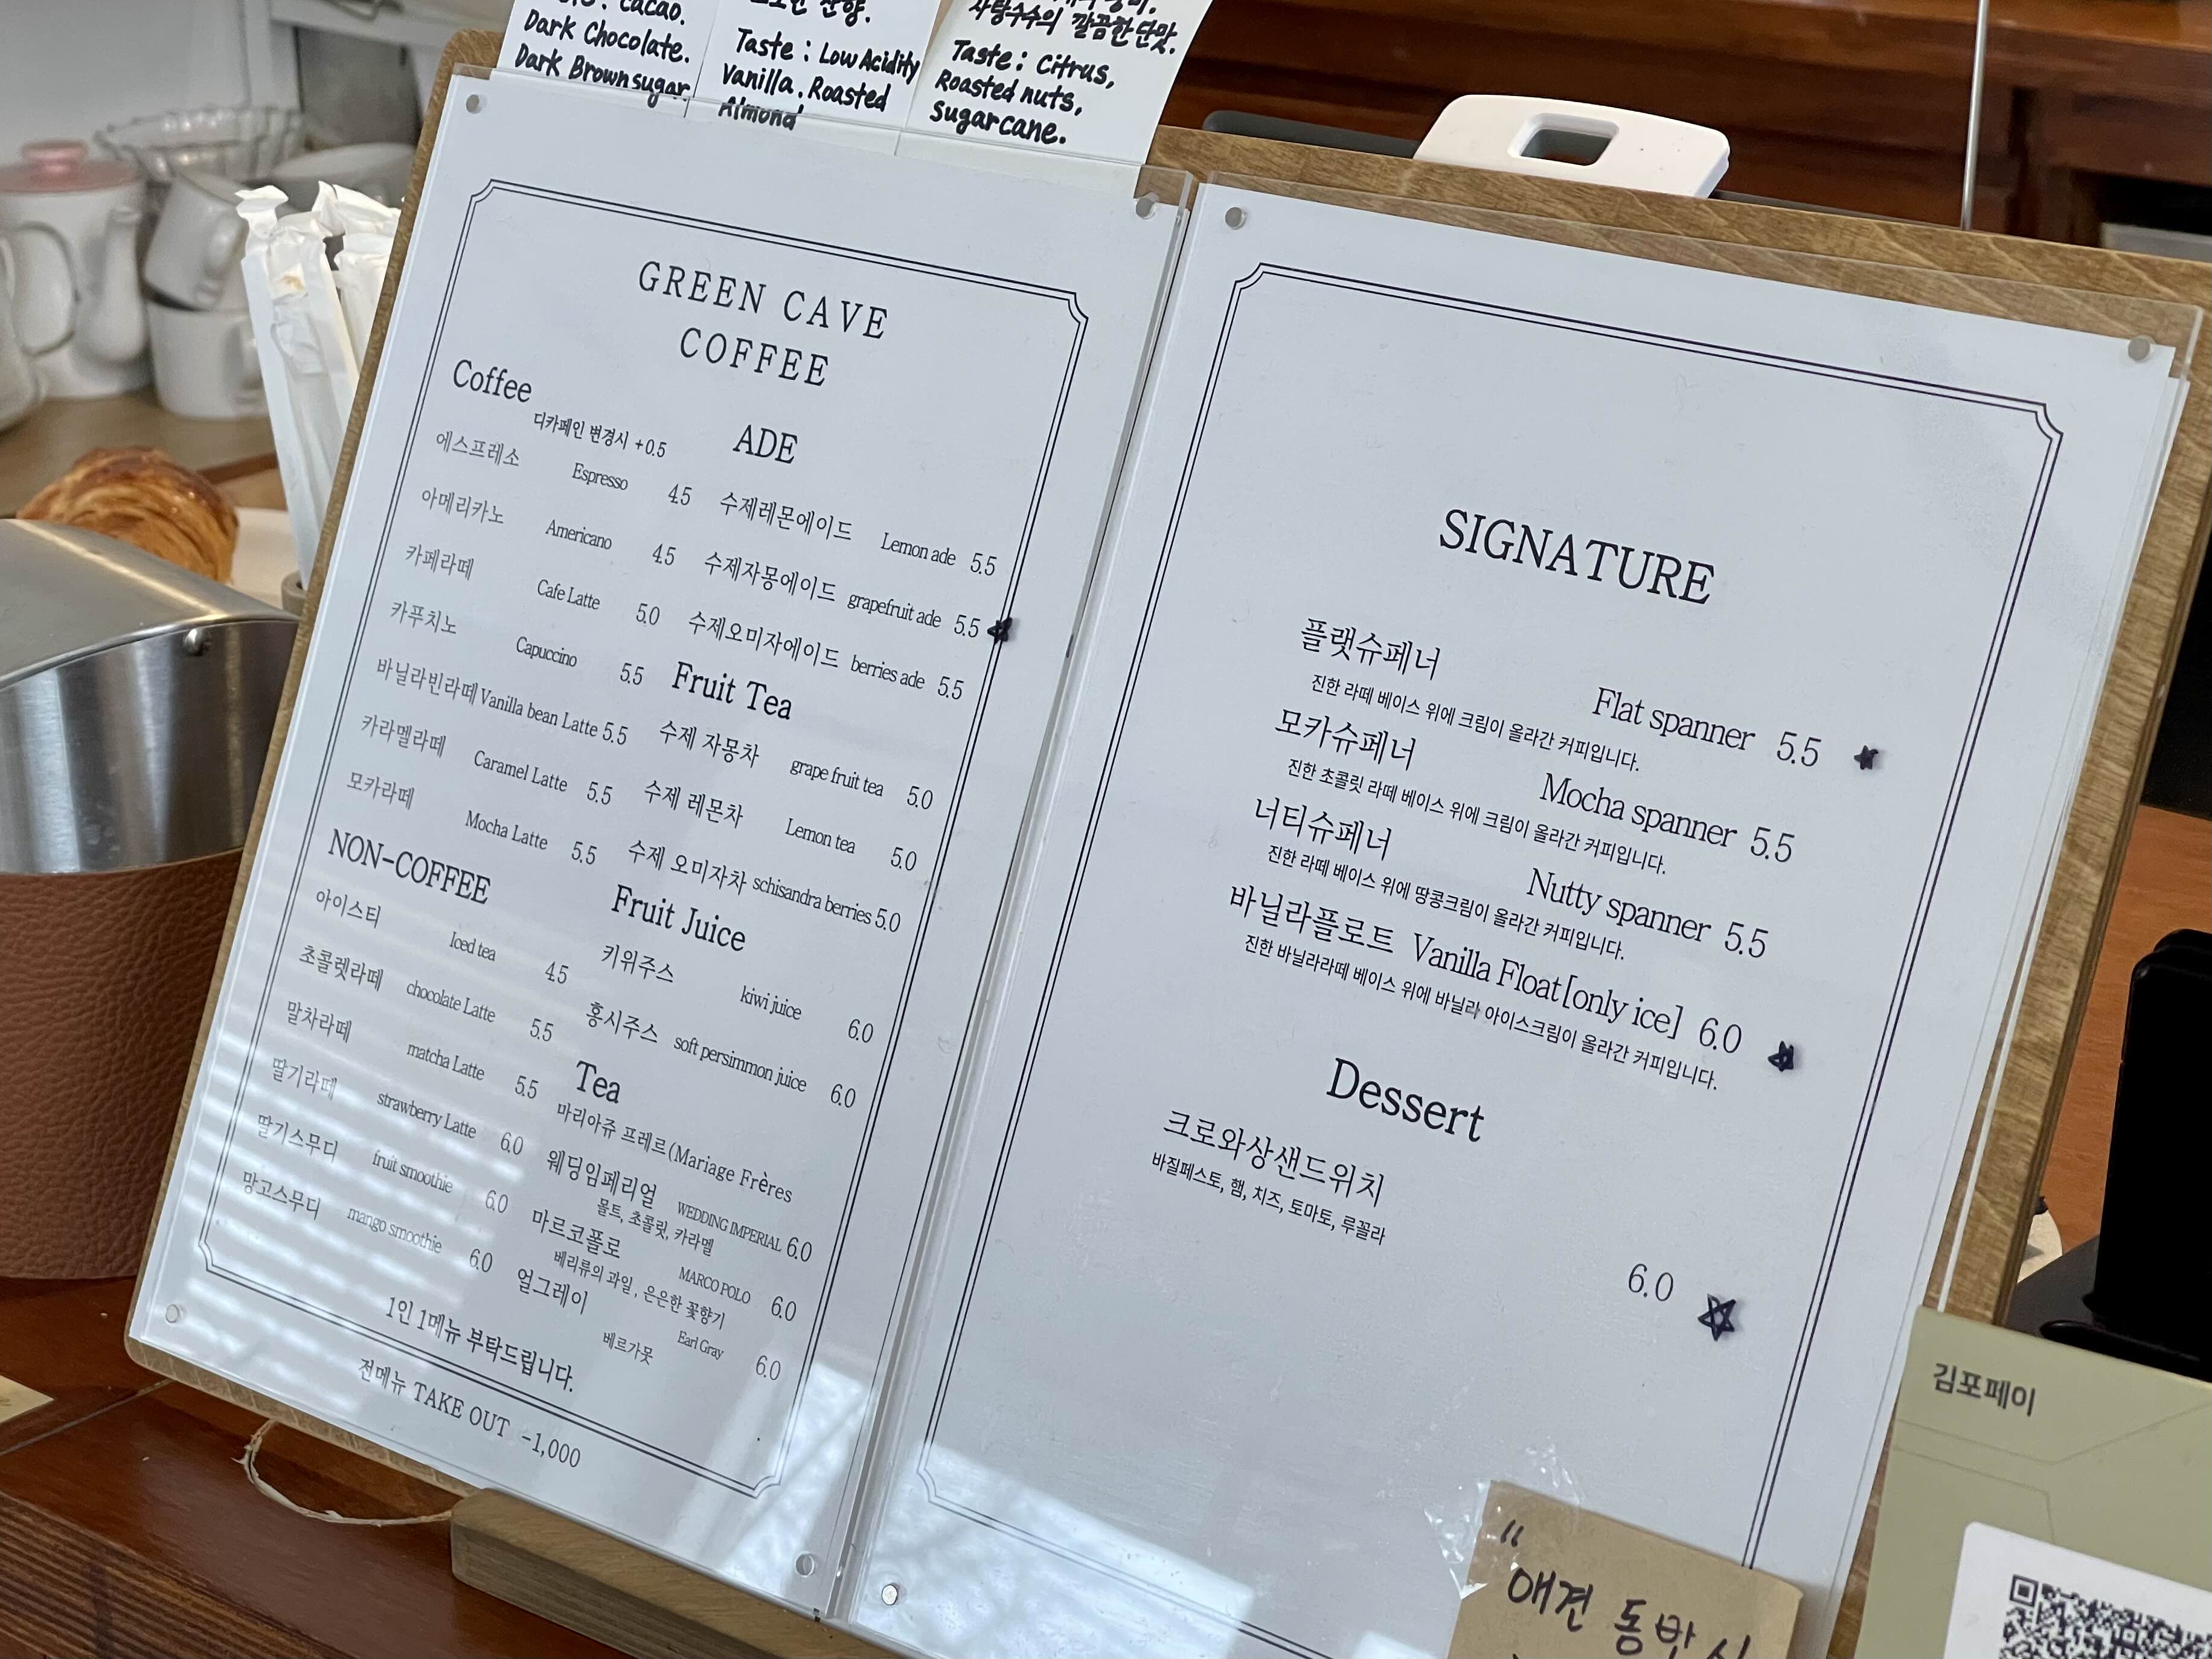 Cacao.
Dark Chocolate.
Dark Brown sugar
산향.
Taste : Low Acidity
Vanilla. Roasted
Almond
사탕수수의 깔끔한 단맛.
Taste : Citrus,
Roasted nuts,
Sugarcane.
GREEN CAVE
COFFEE
Coffee
디카페인 변경시 +0.5
에스프레소 Espresso 4.5
아메리카노 Americano 4.5
카페라떼 Cafe Latte 5.0
카푸치노 Capuccino 5.5
바닐라빈라떼 Vanilla bean Latte 5.5
카라멜라떼 Caramel Latte 5.5
모카라떼 Mocha Latte 5.5
NON-COFFEE
아이스티 Iced tea 4.5
초콜렛라떼 chocolate Latte 5.5
말차라떼 matcha Latte 5.5
딸기라떼 strawberry Latte 6.0
딸기스무디 fruit smoothie 6.0
망고스무디 mango smoothie 6.0
ADE
수제레몬에이드 Lemon ade 5.5
수제자몽에이드 grapefruit ade 5.5
수제오미자에이드 berries ade 5.5
Fruit Tea
수제 자몽차 grape fruit tea 5.0
수제 레몬차 Lemon tea 5.0
수제 오미자차 schisandra berries 5.0
Fruit Juice
키위주스 kiwi juice 6.0
홍시주스 soft persimmon juice 6.0
Tea
마리아쥬 프레르(Mariage Frères
웨딩임페리얼 WEDDING IMPERIAL 6.0
몰트, 초콜릿, 카라멜
마르코폴로 MARCO POLO 6.0
베리류의 과일, 은은한 꽃향기
얼그레이 Earl Gray 6.0
베르가못
1인 1메뉴 부탁드립니다.
전메뉴 TAKE OUT -1,000
SIGNATURE
플랫슈페너 Flat spanner 5.5
진한 라떼 베이스 위에 크림이 올라간 커피입니다.
모카슈페너 Mocha spanner 5.5
진한 초콜릿 라떼 베이스 위에 크림이 올라간 커피입니다.
너티슈페너 Nutty spanner 5.5
진한 라떼 베이스 위에 땅콩크림이 올라간 커피입니다.
바닐라플로트 Vanilla Float[only ice] 6.0
진한 바닐라라떼 베이스 위에 바닐라 아이스크림이 올라간 커피입니다.
Dessert
크로와상샌드위치
바질페스토, 햄, 치즈, 토마토, 루꼴라
6.0
김포페이
"애견 동반 시